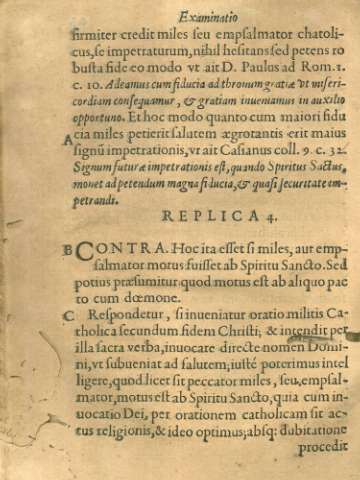 Examinatio
firmiter credit miles seu empsalmator chatoli-
cus, se impetraturum, nihil hesitans sed petens ro
busta fide eo modo vt ait D. Paulus ad Rom. 1.
c. 10. Adeamus cum fiducia ad thronum gratiæ vt miseri-
cordiam consequamur, & gratiam inueniamus in auxilio
opportuno. Et hoc modo quanto cum maiori fidu
A cia miles petierit salutem ægrotantis erit maius
signũ impetrationis, vt ait Casianus coll. 9. c. 32.
Signum futuræ impetrationis est, quando Spiritus Sactus,
monet ad petendum magna fiducia, & quasi securitate im-
petrandi.
REPLICA 4.
B CONTRA. Hoc ita esset si miles, aut emp-
salmator motus fuisset ab Spiritu Sancto. Sed
potius præsumitur quod motus est ab aliquo pac
to cum dœmone.
C Respondetur, si inueniatur oratio militis Ca-
tholica secundum fidens Christi; & intendit per
illa sacra verba, inuocare directe nomen Domi-
ni, vt subueniat ad salutem; iustè poterimus intel
ligere, quod licet sit peccator miles, seu, empsal-
mator, motus est ab Spiritu Sancto, quia cum in-
uocatio Dei, per orationem catholicam sit ac-
tus religionis, & ideo optimus; absq; dubitatione
procedit